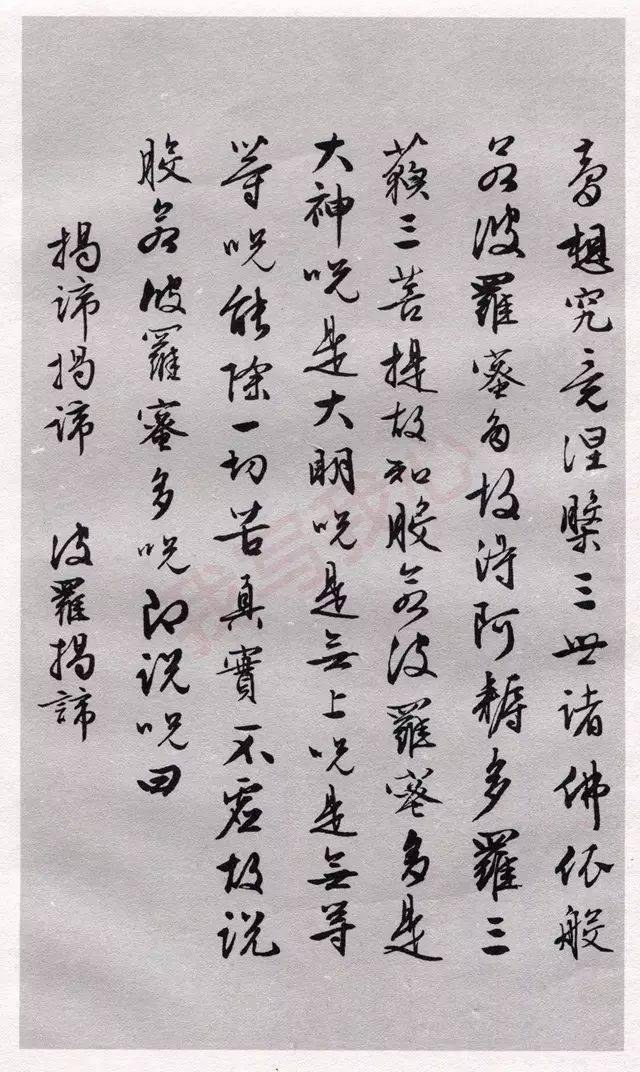 夢想究竟涅槃三世諸佛依般
若波羅蜜多故得阿耨多羅三
藐三菩提故知般若波羅蜜多是
大神咒是大明咒是無上咒是無等
等咒能除一切苦真實不虛故說
般若波羅蜜多咒即說咒曰
揭諦揭諦 波羅揭諦
我写我心